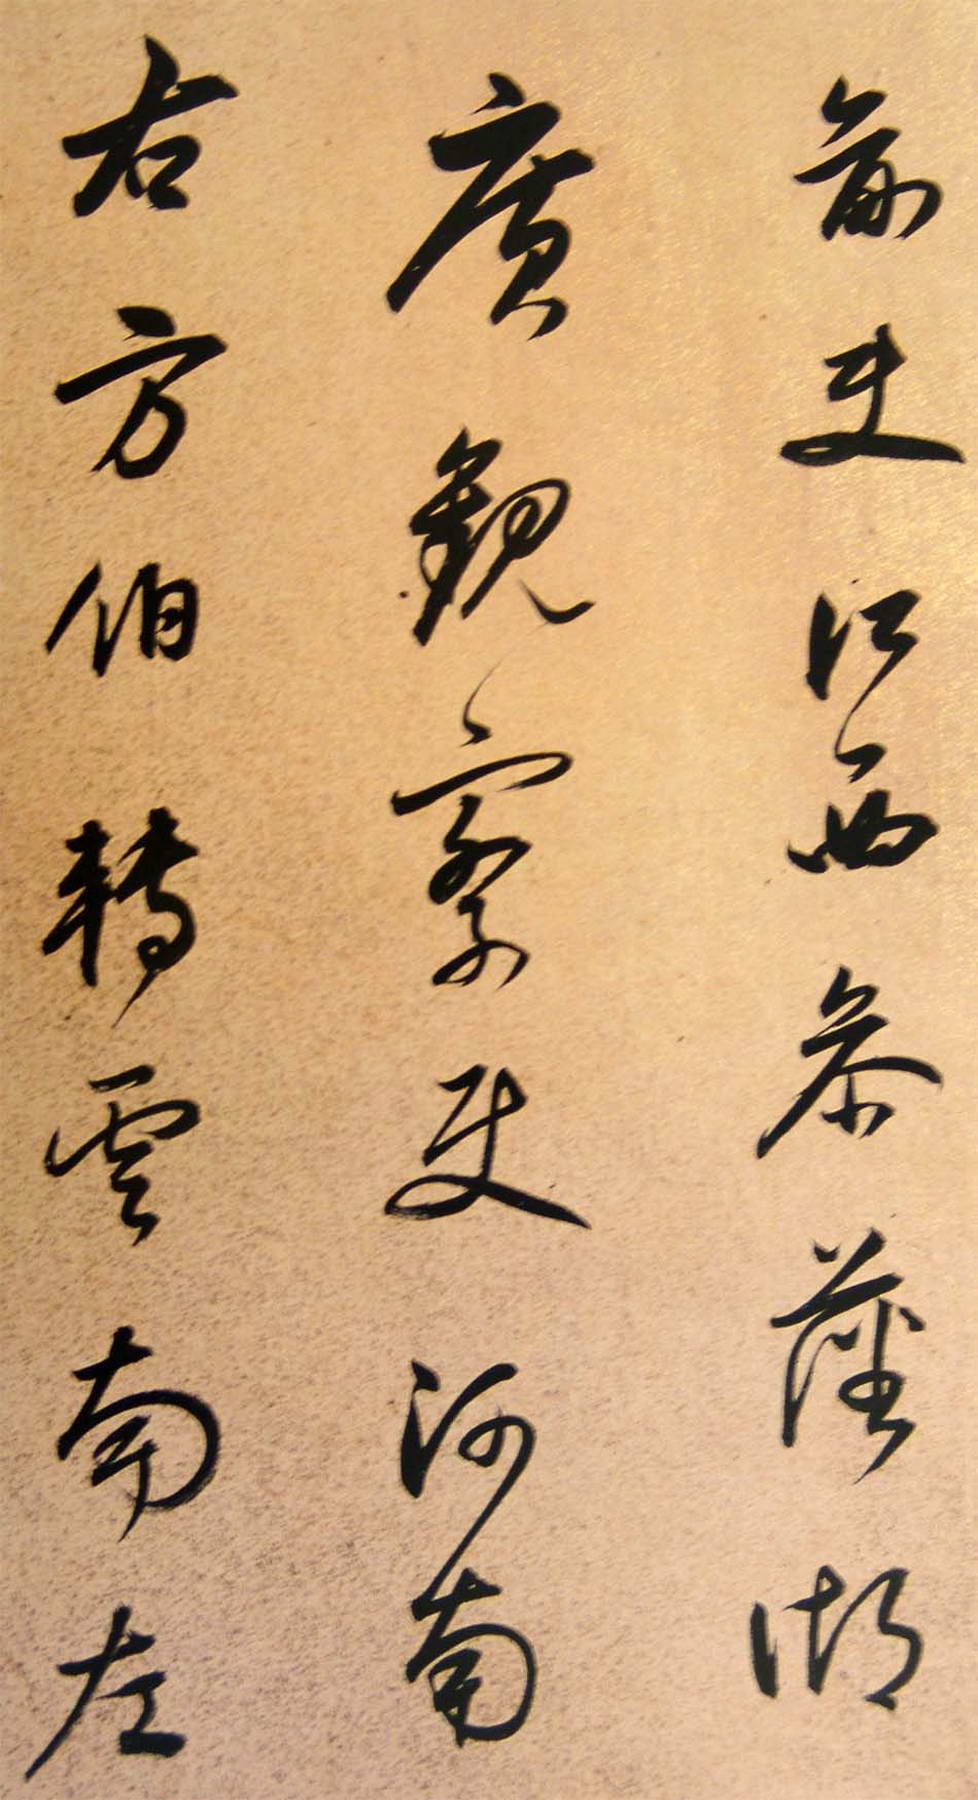 前史江西叅藩湖
廣觀察史河南
右方伯轉雲南左